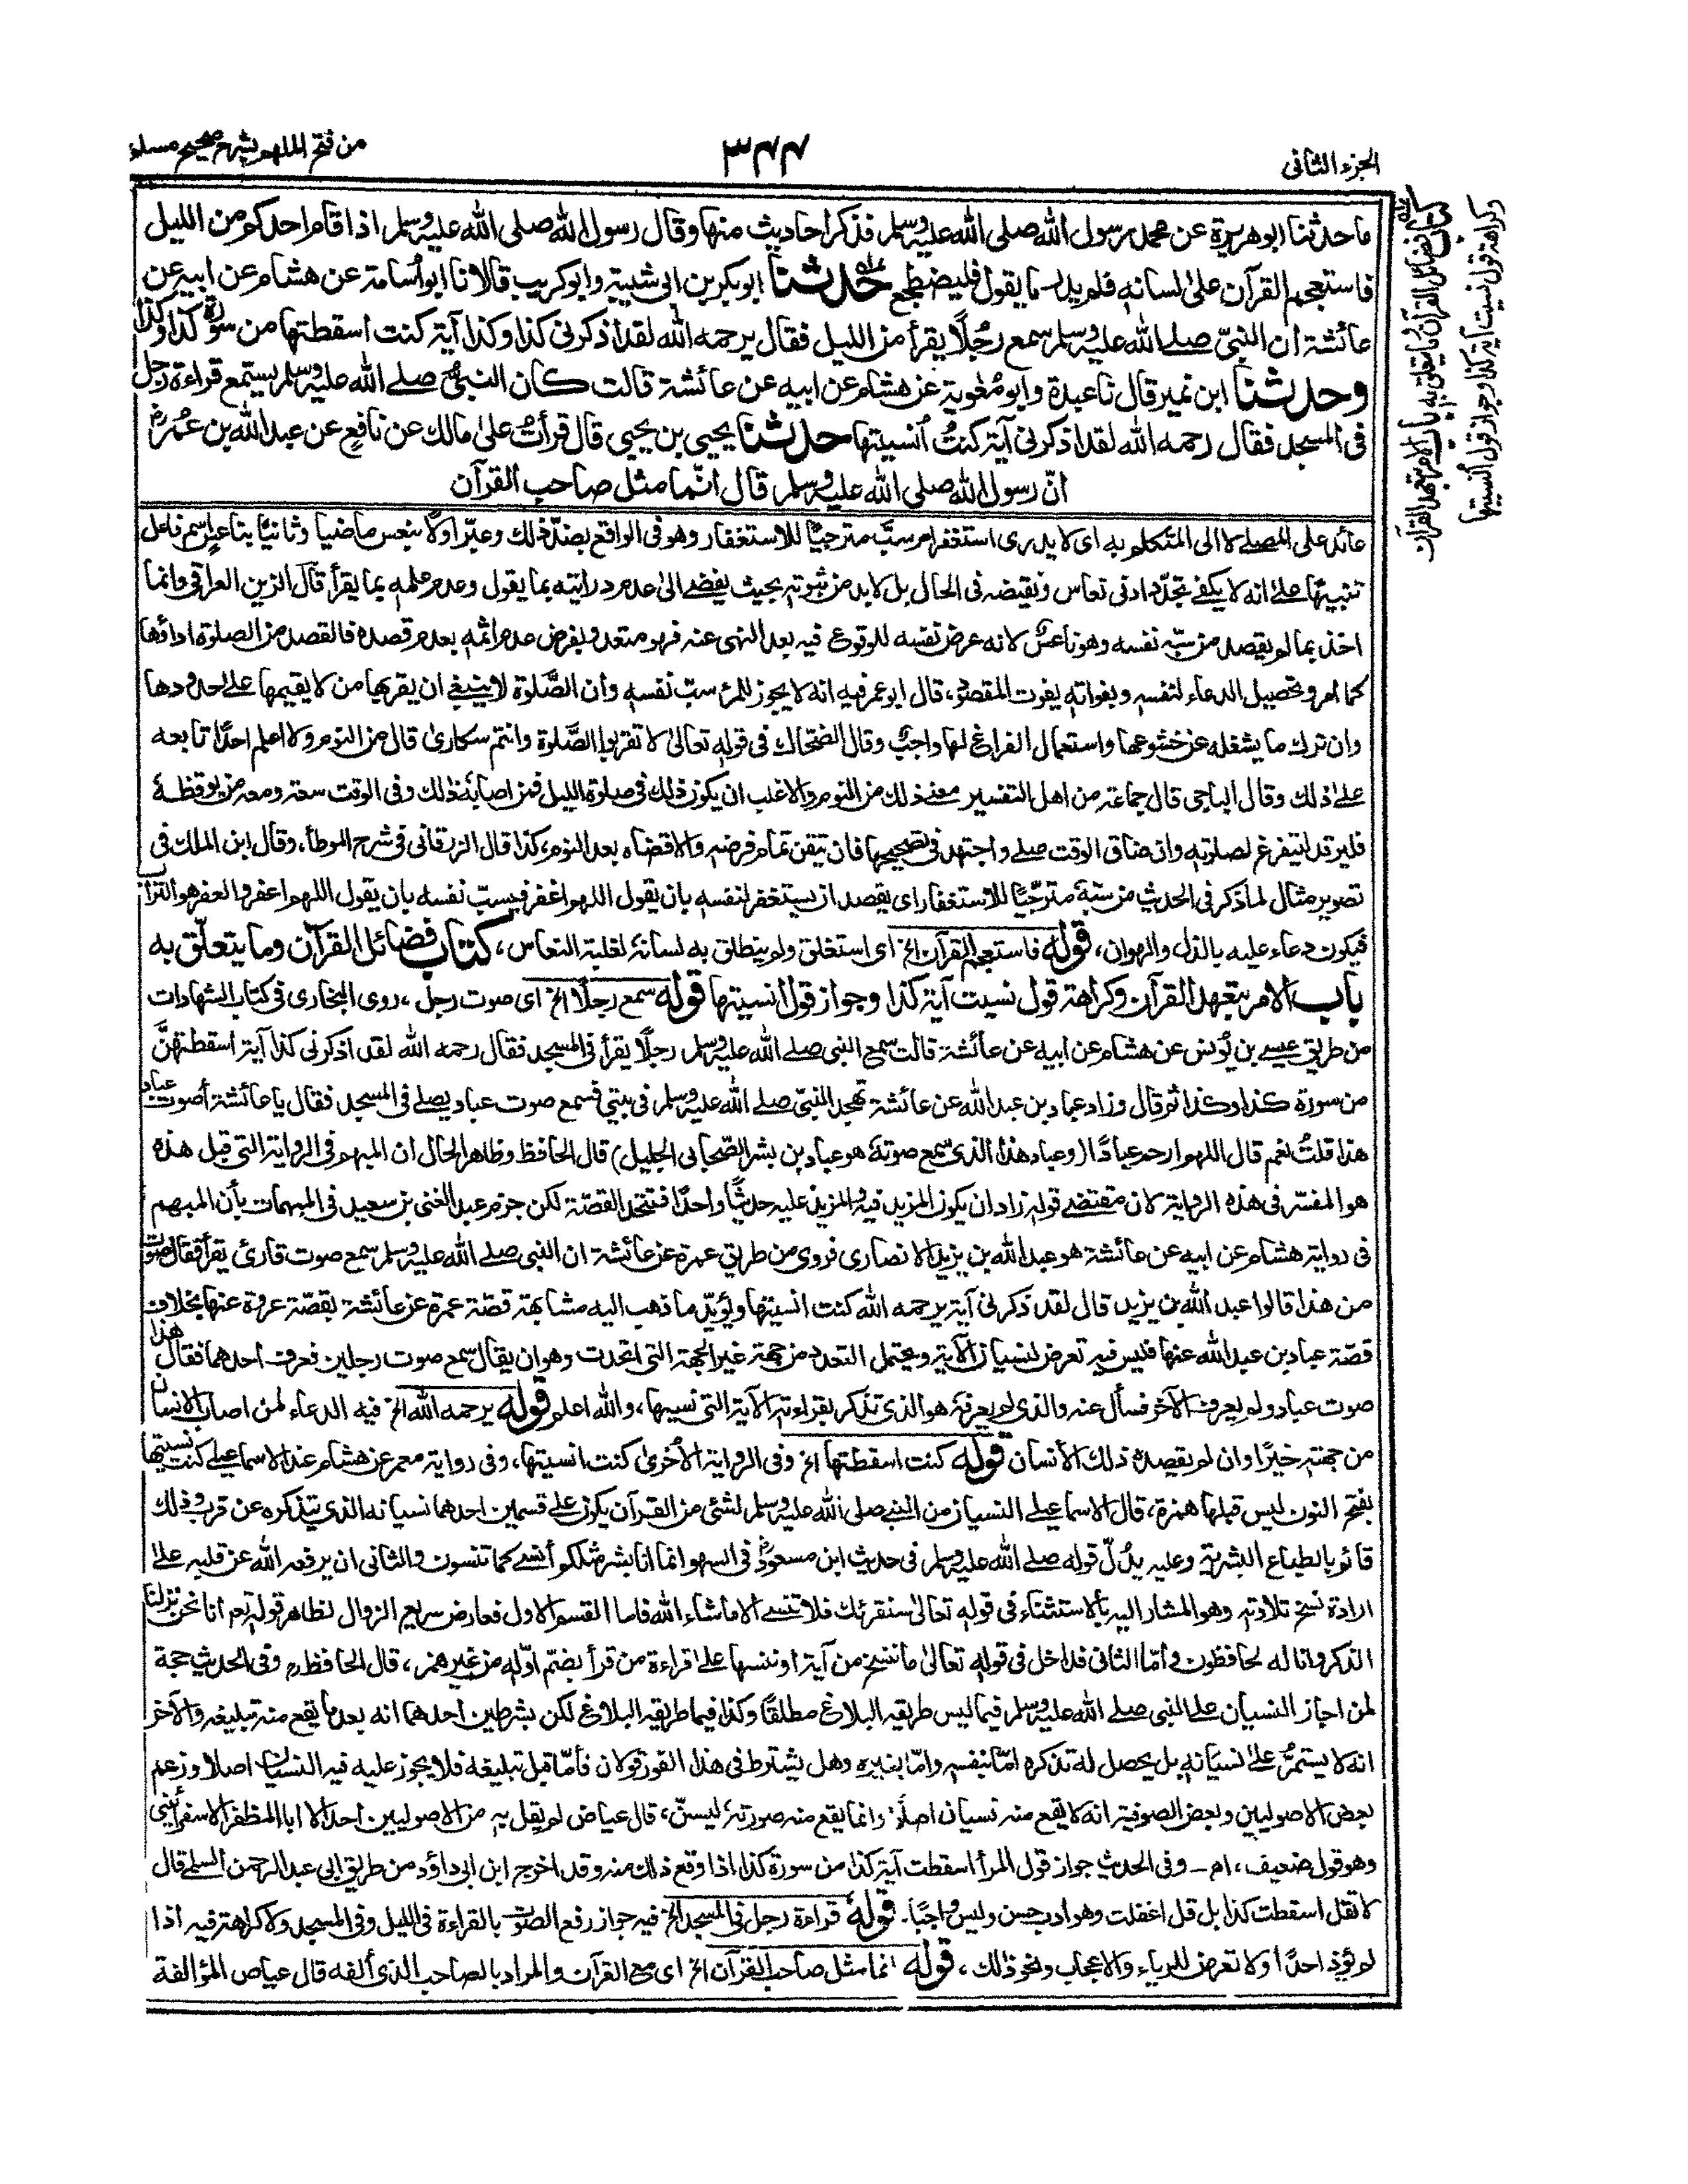 الجزء الثانى
٣٤٤
من فتح الملهم بشرح صحيح مسلم
كتاب فضائل القرآن وما يتعلق به باب الامر بتعهد القرآن
وكراهة قول نسيت آية كذا وجواز قول أنسيتها
ما حدثنا ابوهريرة عن محمد رسول الله صلى الله عليه وسلم فذكر احاديث منها وقال رسول الله صلى الله عليه وسلم اذا قام احدكم من الليل
فاستعجم القرآن على لسانه فلم يدر ما يقول فليضطجع حدثنا ابوبكر بن ابى شيبة وابو كريب قالا نا ابو اُسامة عن هشام عن ابيه عن
عائشة ان النبىّ صلے الله عليه وسلم سمع رجُلًا يقرأ من الليل فقال يرحمه الله لقد اذكرنى كذا وكذا آية كنت اسقطتها من سورة كذا وكذا
وحدثنا ابن نمير قال نا عبدة وابو مُعٰوية عن هشام عن ابيه عن عائشة قالت كان النبىُّ صلے الله عليه وسلم يستمع قراءة رجل
فى المسجد فقال رحمه الله لقد اذكرنى آية كنتُ اُنسيتها حدثنا يحيى بن يحيى قال قرأتُ على مالك عن نافع عن عبد الله بن عُمر
انّ رسول الله صلى الله عليه وسلم قال انّما مثل صاحب القرآن
عائد على المصلے لا الى المتكلم به اى لا يدرى استغفر ام سبَّ مترجيًا للاستغفار وهو فى الواقع بضدّ ذلك وعبّر اولًا بنعس ماضيا وثانيًا بناعس اسم فاعل
تنبيهًا علىٰ انه لا يكفے تجدّد ادنى نعاس وتقيضه فى الحال بل لا بد من ثبوته بحيث يفضے الىٰ عدم درايته بما يقول وعدم علمه بما يقرأ قال الزين العراقى وانما
اخذ بما لم يقصد من سبّه نفسه وهو ناعس لانه عرض نفسه للوقوع فيه بعد النهى عنه فهو متعد وبفرض عدم اثمه بعدم قصده فالقصد من الصلوة اداؤها
كما امر وتحصيل الدعاء لنفسه وبفواته يفوت المقصود، قال ابو عمر فيه انه لا يجوز للمرء سبّ نفسه وان الصَّلوة لا ينبغى ان يقربها من لا يقيمها على حدودها
وان ترك ما يشغله عن خشوعها واستعمال الفراغ لها واجبٌ وقال الضحاك فى قوله تعالى لا تقربوا الصَّلوة وانتم سكارىٰ قال من النوم ولا اعلم احدًا تابعه
علىٰ ذلك وقال الباجى قال جماعة من اهل التفسير معنى ذلك من النوم والاغلب ان يكون ذلك فى صلوة الليل فمن اصابه ذلك وفى الوقت سعة ومعه من يوقظه
فليرقد ليتفرغ لصلوته وان ضاق الوقت صلے واجتهد فى تصحيحها فان تيقن تمام فرضه والا قضاه بعد النوم، كذا قال الزرقانى فى شرح الموطأ، وقال ابن الملك فى
تصوير مثال لما ذكر فى الحديث من سبّه مترجّيًا للاستغفار اى يقصد ان يستغفر لنفسه بان يقول اللهم اغفر فيسبّ نفسه بان يقول اللهم اعفر والعفر هو التراب
فيكون دعاء عليه بالذل والهوان، قوله فاستعجم القرآن الخ اى استغلق ولم ينطلق به لسانه لغلبة النعاس، كتاب فضائل القرآن وما يتعلّق به
باب الامر بتعهد القرآن وكراهة قول نسيت آية كذا وجواز قول أنسيتها قوله سمع رجلًا الخ اى صوت رجل، روى البخارى فى كتاب الشهادات
من طريق عيسے بن يُونس عن هشام عن ابيه عن عائشة قالت سمع النبى صلے الله عليه وسلم رجلًا يقرأ فى المسجد فقال رحمه الله لقد اذكرنى كذا آية اسقطتهنَّ
من سورة كذا وكذا ثم قال وزاد عباد بن عبد الله عن عائشة تهجد النبىّ صلے الله عليه وسلم فى بيتى فسمع صوت عباد يصلے فى المسجد فقال يا عائشة أصوت عباد
هذا قلتُ نعم قال اللهم ارحم عبادًا (وعباد هذا الذى سمع صوته هو عباد بن بشر الصّحابى الجليل) قال الحافظ وظاهر الحال ان المبهم فى الرواية التى قبل هذه
هو المفسّر فى هذه الرواية لان مقتضے قوله زاد ان يكون المزيد فيه والمزيد عليه حديثًا واحدًا فتتحد القصّة لكن جزم عبد الغنى بن سعيد فى المبهمات بأن المبهم
فى رواية هشام عن ابيه عن عائشة هو عبد الله بن يزيد الانصارى فروى من طريق عمرة عن عائشة ان النبى صلے الله عليه وسلم سمع صوت قارئ يقرأ فقال صوت
من هذا قالوا عبد الله بن يزيد قال لقد ذكرنى آية يرحمه الله كنت انسيتها ويؤيّد ما ذهب اليه مشابهة قصّة عمرة عن عائشة بقصّة عروة عنها بخلاف
قصّة عباد بن عبد الله عنها فليس فيه تعرض لنسيان الآية ويحتمل التعدد من جهة غير الجهة التى اتحدت وهو ان يقال سمع صوت رجلين فعرف احدهما فقال هذا
صوت عباد ولم يعرف الآخر فسأل عنه والذى لم يعرفه هو الذى تذكر بقراءته الآية التى نسيها، والله اعلم قوله يرحمه الله الخ فيه الدعاء لمن اصاب الانسان
من جهته خيرًا وان لم يقصده ذلك الأنسان قوله كنت اسقطتها الخ وفى الرواية الأُخرىٰ كنت انسيتها، وفى رواية معمر عن هشام عند الاسماعيلے كنت نسيتها
بفتح النون ليس قبلها همزة، قال الاسماعيلے النسيان من النبے صلى الله عليه وسلم لشئ من القرآن يكون علے قسمين احدهما نسيانه الذى يتذكره عن قرب وذلك
قائم بالطباع البشرية وعليه يدُلّ قوله صلے الله عليه وسلم فى حديث ابن مسعود فى السهو انما انا بشر مثلكم أنسے كما تنسون والثانى ان يرفعه الله عن قلبه علىٰ
ارادة نسخ تلاوته وهو المشار اليه بالاستثناء فى قوله تعالى سنقرئك فلا تنسے الا ما شاء الله فاما القسم الاول فعارض سريع الزوال لظاهر قوله تم انا نحن نزلنا
الذكر وانا له لحافظون و امّا الثانى فداخل فى قوله تعالىٰ ما ننسخ من آية او ننسها علىٰ قراءة من قرأ بضم اوّله من غير همز، قال الحافظ وفى الحديث حجة
لمن اجاز النسيان على النبى صلے الله عليه وسلم فيما ليس طريقه البلاغ مطلقًا وكذا فيما طريقه البلاغ لكن بشرطين احدهما انه بعد ما يقع منه تبليغه والآخر
انه لا يستمرُّ علىٰ نسيانه بل يحصل له تذكره امّا بنفسه وامّا بغيره وهل يشترط فى هذا الفور قولان فأمّا قبل تبليغه فلا يجوز عليه فيه النسيان اصلا وزعم
بعض الاصوليين وبعض الصوفية انه لا يقع منه نسيان اصلًا وانما يقع منه صورته ليسنّ، قال عياض لم يقل به من الاصوليين احد الا ابا المظفر الاسفرائينى
وهو قول ضعيف، اه‍ـ وفى الحديث جواز قول المرأ اسقطت آية كذا من سورة كذا اذا وقع ذلك منه وقد اخرج ابن ابى داؤد من طريق ابى عبد الرحمٰن السلمے قال
لا تقل اسقطت كذا بل قل اغفلت وهو ادب حسن وليس واجبًا۔ قوله قراءة رجل فى المسجد الخ فيه جواز رفع الصوت بالقراءة فى الليل وفى المسجد ولا كراهة فيه اذا
لم يؤذ احدًا ولا تعرض للرياء والاعجاب ونحو ذلك، قوله انما مثل صاحب القرآن الخ اى مع القرآن والمراد بالصاحب الذى ألفه قال عياض المؤالفة